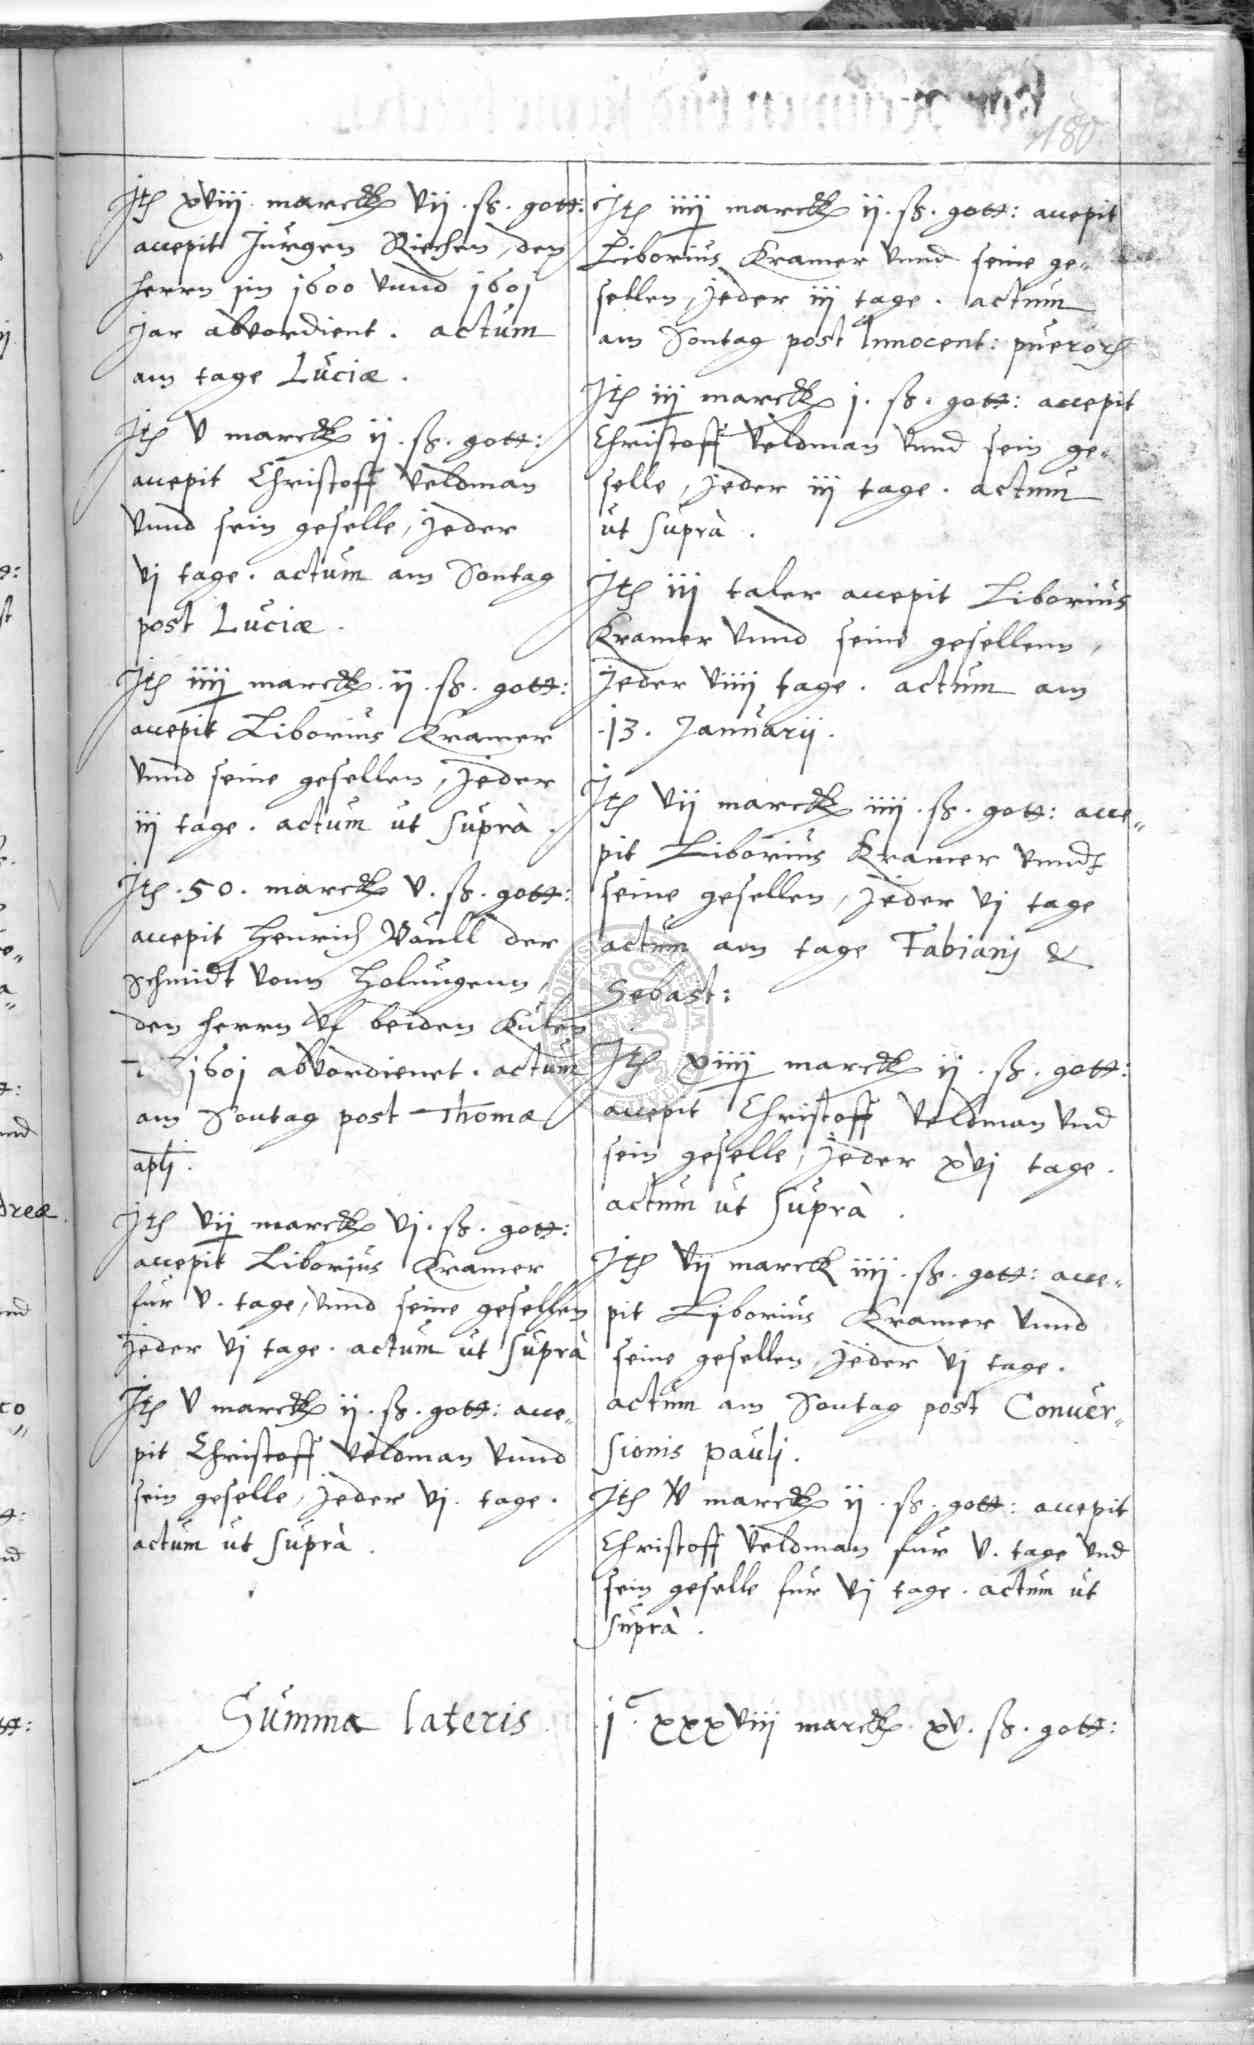 180
Itē xviij marck vij. ß. gott:
accepit Jürgen Riechen, den
herrn jm 1600 vnnd 1601
Jar abvordient. actum
am tage Luciæ.
Itē v marck ij. ß. gott:
accepit Christoff Veldman
vnnd sein geselle, Jeder
vj tage. actum am Sontag
post Luciæ.
Itē iiij marck. ij. ß. gott:
accepit Liborius Kramer
vnnd seine gesellen, Jeder
iij tage. actum ut suprà.
Itē .50. marck v. ß. gott:
accepit Henrich der
Schmidt vonn Holungenn,
den herrn vf beiden
1601 abvordienet. actum
am Sontag post Thomæ
apli.
Itē vij marck vj. ß. gott:
accepit Liborius Kramer
für v. tage, vnnd seine gesellen
Jeder vj tage. actum ut suprà
Itē v marck ij. ß. gott: acce„
pit Christoff Veldman vnnd
sein geselle, Jeder vj. tage.
actum ut suprà.
Summa lateris
Itē iiij marck ij. ß. gott: accepit
Liborius Kramer vnnd seine ge„
sellen, Jeder iij tage. actum
am Sontag post Innocent: puerorū
Itē iij marck j. ß. gott: accepit
Christoff Veldman vnnd sein ge„
selle, Jeder iij tage. actum
ut suprà.
Itē iij taler accepit Liborius
Kramer vnnd seine gesellenn,
Jeder viiij tage. actum am
.13. Januarij.
Itē vij marck iiij. ß. gott: acce„
pit Liborius Kramer vnndt
seine gesellen, Jeder vj tage
actum am tage Fabianj &
Sebast:
Itē xiiij marck ij. ß. gott:
accepit Christoff Veldman vnd
sein geselle, Jeder xvj tage.
actum ut suprà.
Itē vij marck iiij. ß. gott: acce„
pit Liborius Kramer vnnd
seine gesellen, Jeder vj tage.
actum am Sontag post Conuer„
sionis pauli.
Itē v marck ij. ß. gott: accepit
Christoff Veldman für v. tage vnd
sein geselle für vj tage. actum ut
suprà.
.jᶜ. xxxviij marck. xv. ß. gott: